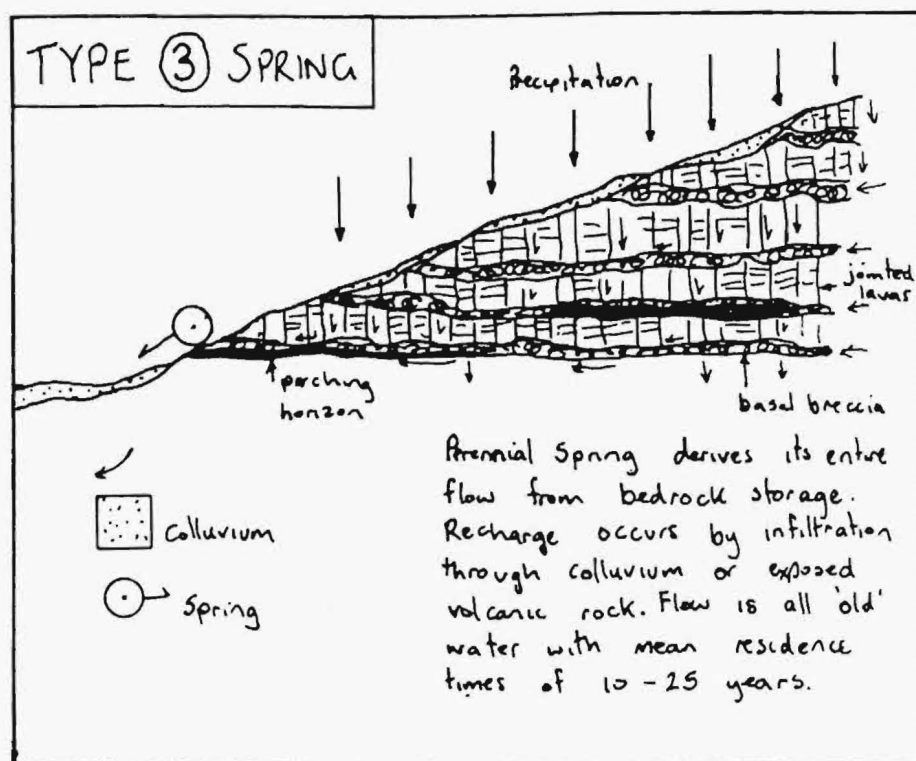 TYPE ③ SPRING
Precipitation
jointed
lavas
perching
horizon
basal breccia
Perennial Spring derives its entire
flow from bedrock storage.
Recharge occurs by infiltration
through colluvium or exposed
volcanic rock. Flow is all 'old'
water with mean residence
times of 10-25 years.
Colluvium
Spring